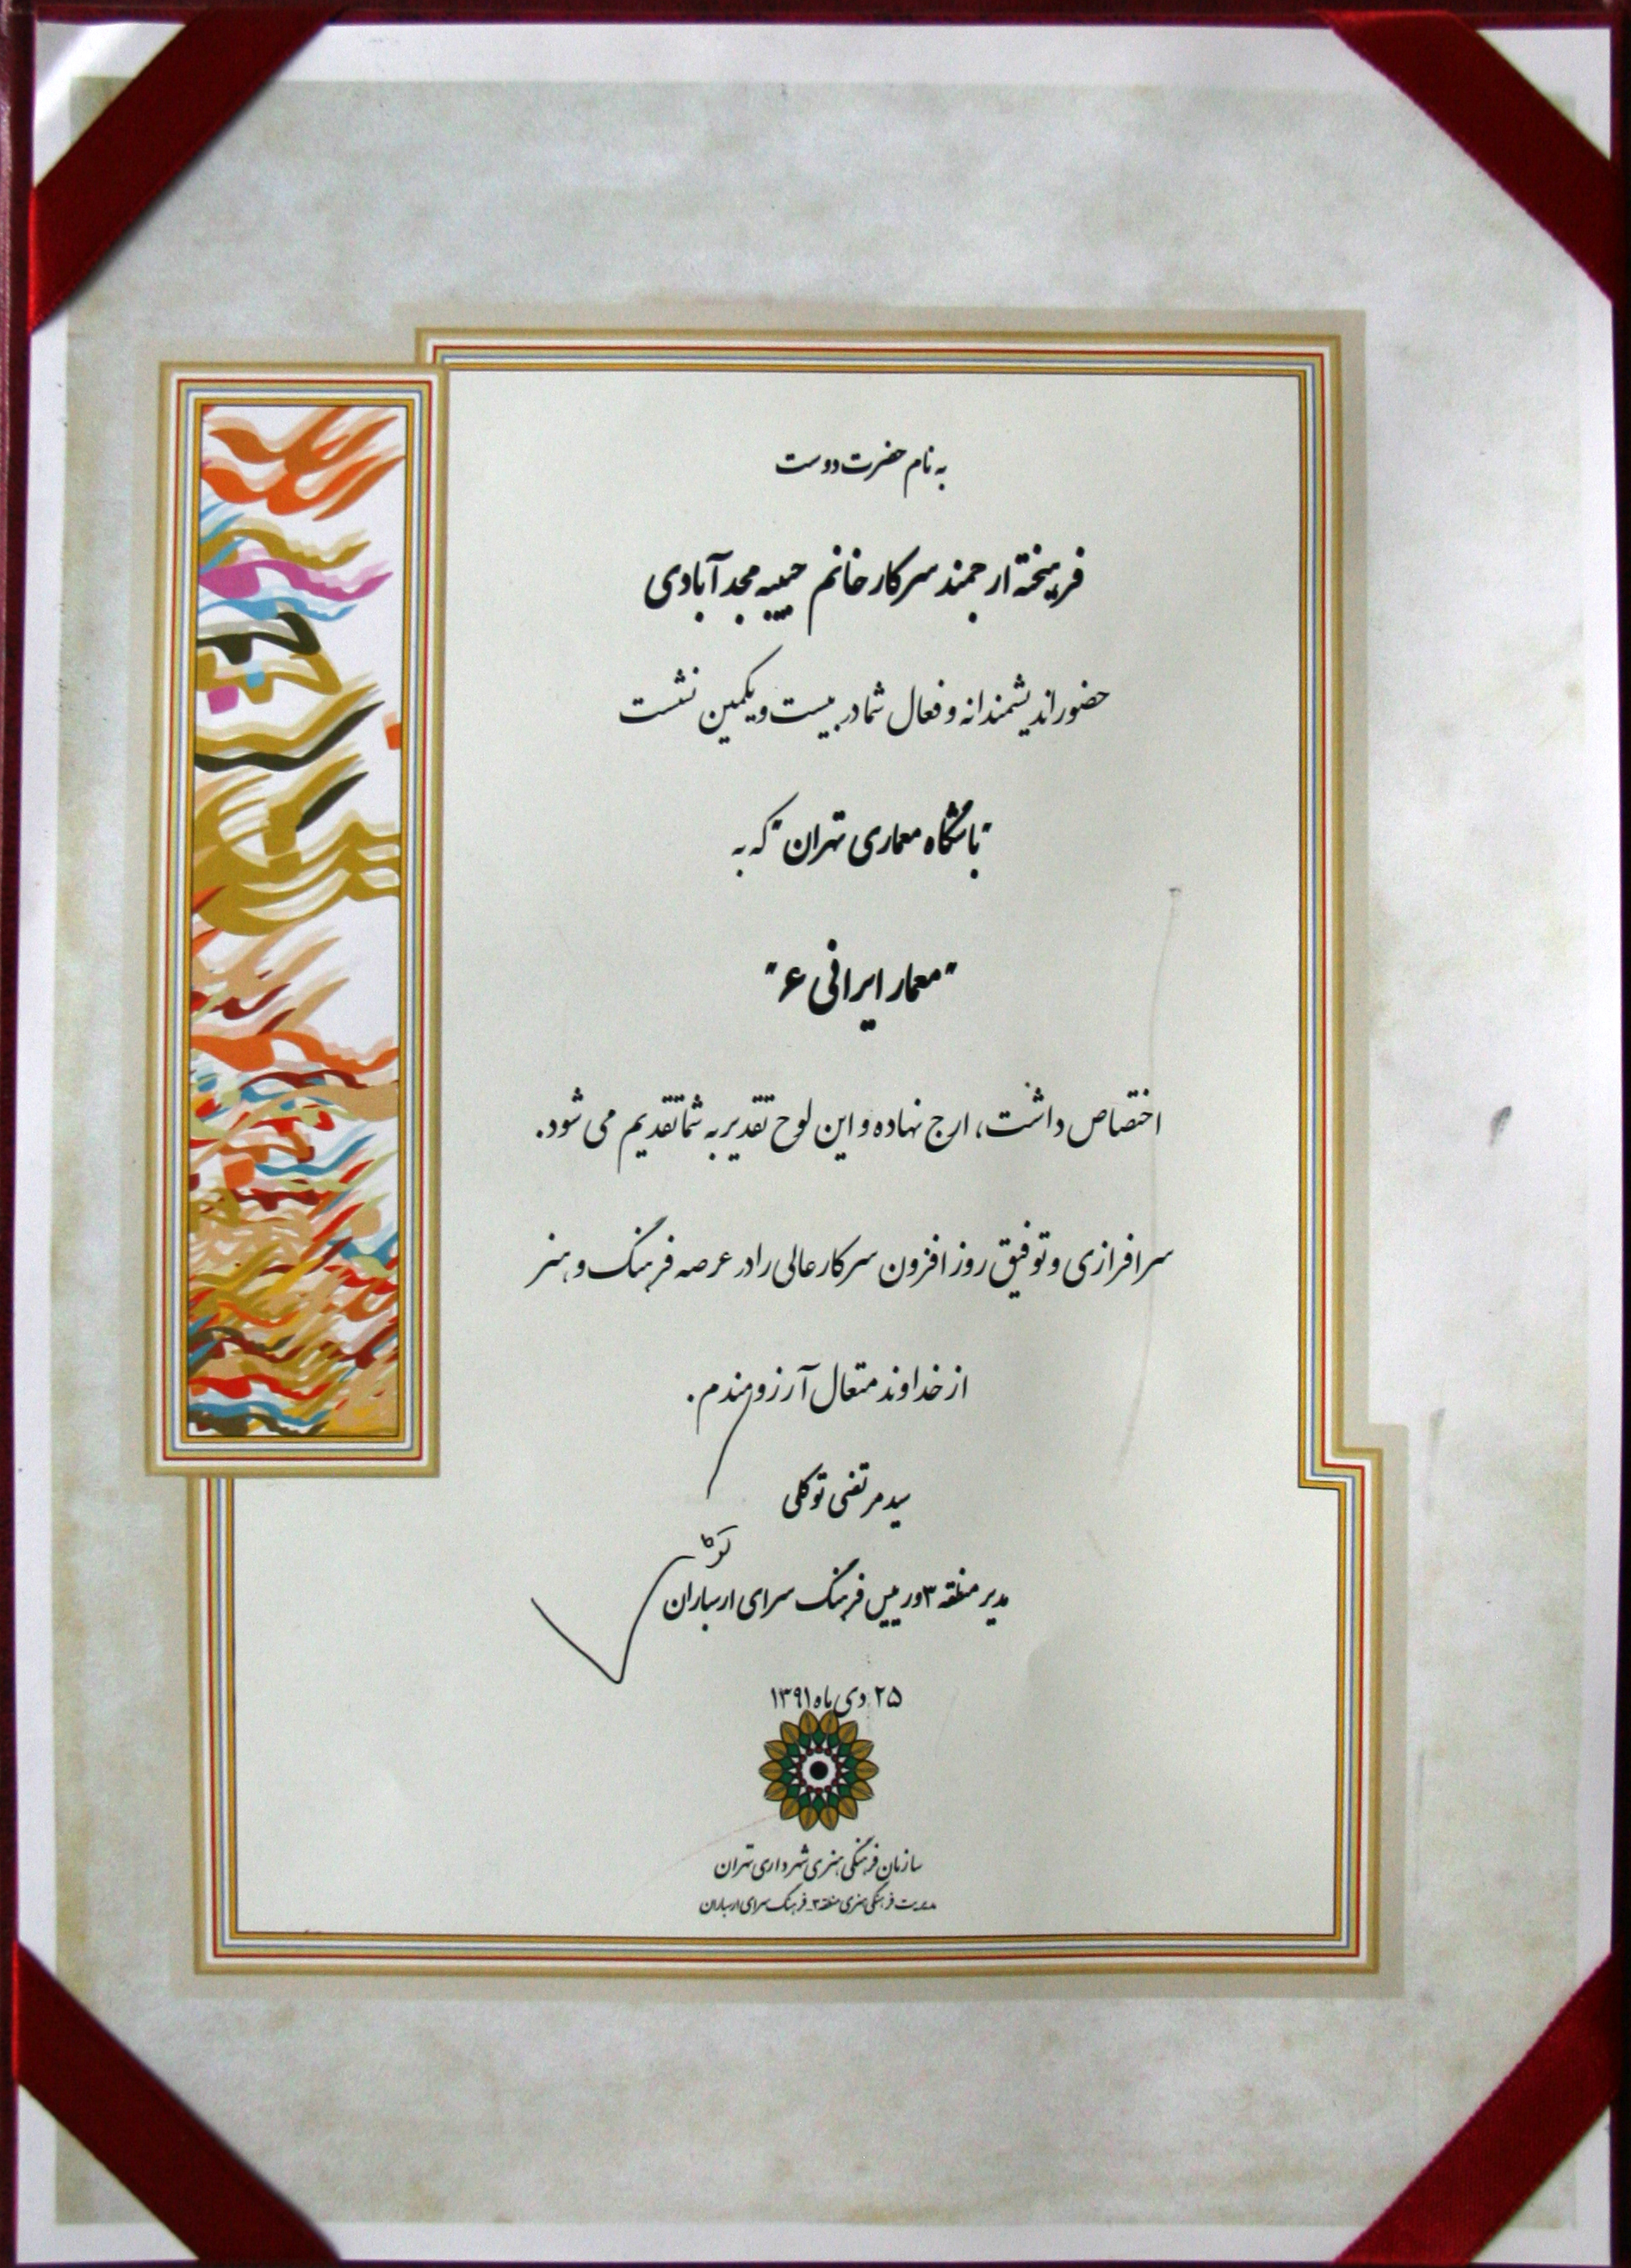 به نام حضرت دوست
فرهیخته ارجمند سرکار خانم حبیبه مجدآبادی
حضور اندیشمندانه و فعال شما در بیست و یکمین نشست
"باشگاه معماری تهران" که به
"معمار ایرانی ۶"
اختصاص داشت، ارج نهاده و این لوح تقدیر به شما تقدیم می شود.
سرافرازی و توفیق روز افزون سرکار عالی را در عرصه فرهنگ و هنر
از خداوند متعال آرزومندم.
سید مرتضی توکلی
مدیر منطقه ۳ و رییس فرهنگ سرای ارسباران
۲۵ دی ماه ۱۳۹۱
سازمان فرهنگی هنری شهرداری تهران
مدیریت فرهنگی هنری منطقه ۳_فرهنگ سرای ارسباران